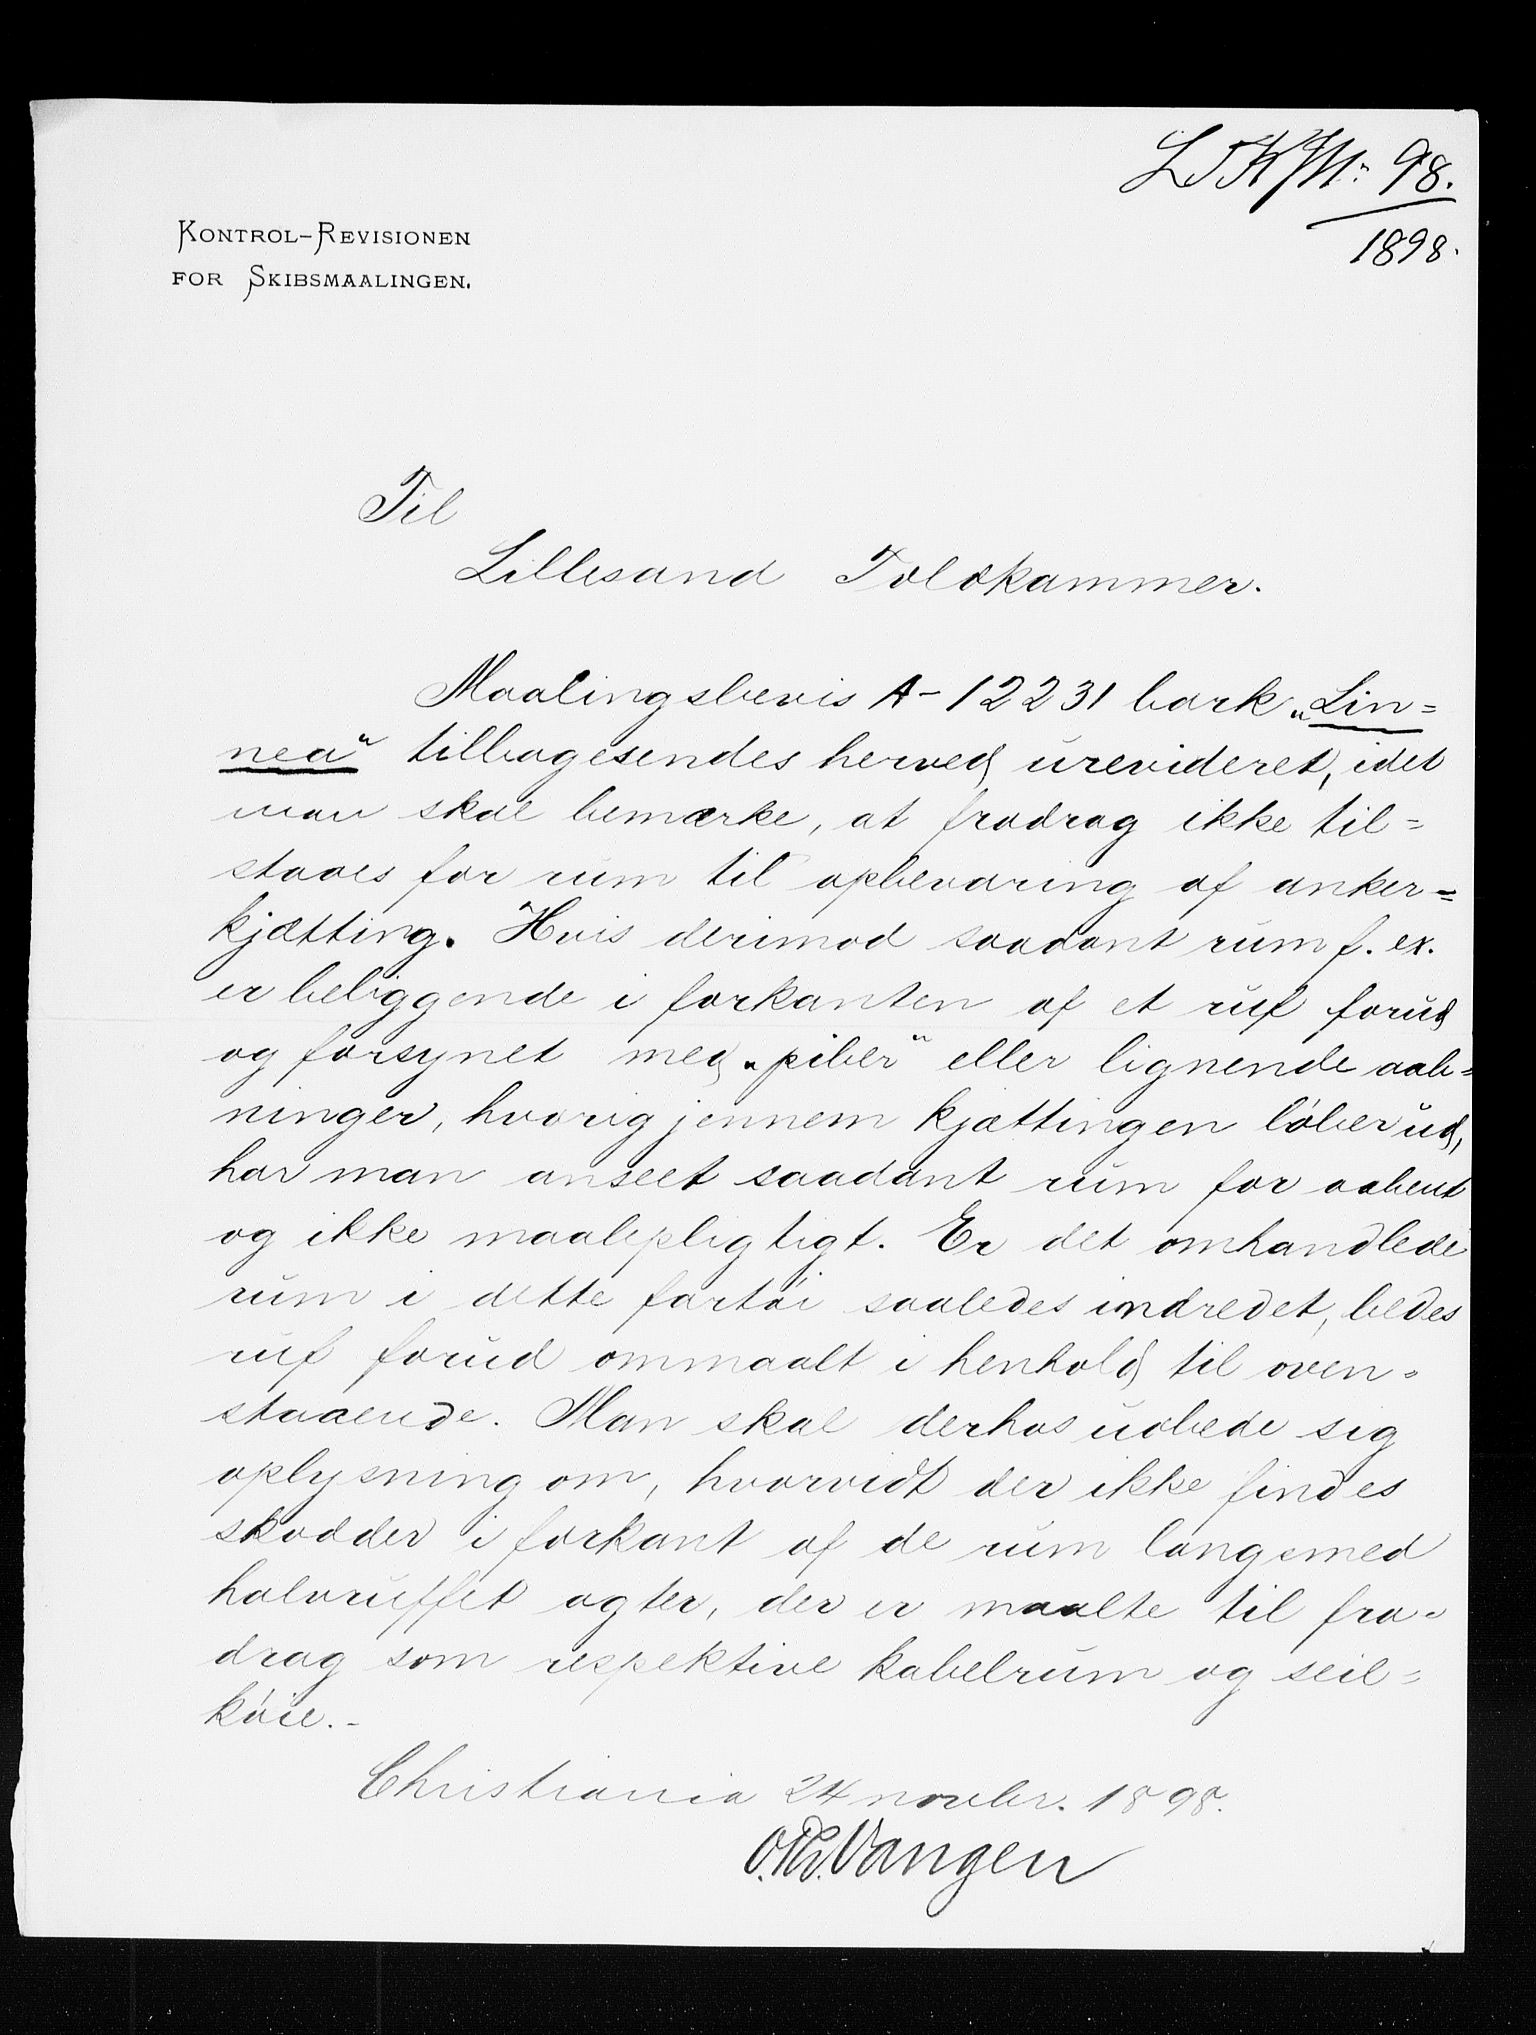 98.
1898.
KONTROL-REVISIONEN
FOR SKIBSMAALINGEN.
Til
Lillesand Toldkammer.
Maalingsbevis A-12231 bark „Lin=
nea“ tilbagesendes herved urevideret, idet
man skal bemærke, at fradrag ikke til=
staaes for rum til opbevaring af anker=
kjætting. Hvis derimod saadant rum f. ex.
er beliggende i forkanten af et ruf forud
og forsynet med „piber“ eller lignende aab=
ninger, hvorigjennem kjættingen løber ud,
har man anseet saadant rum for aabent
og ikke maalepligtigt. Er det omhandlede
rum i dette fartøi saaledes indredet, bedes
ruf forud ommaalt i henhold til oven=
staaende. Man skal derhos udbede sig
oplysning om, hvorvidt der ikke findes
skodder i forkant af de rum langsmed
halvruffet agter, der er maalte til fra=
drag som respektive kabelrum og seil=
køie.-
Christiania 24 novbr. 1898.
O. Th. Vangen